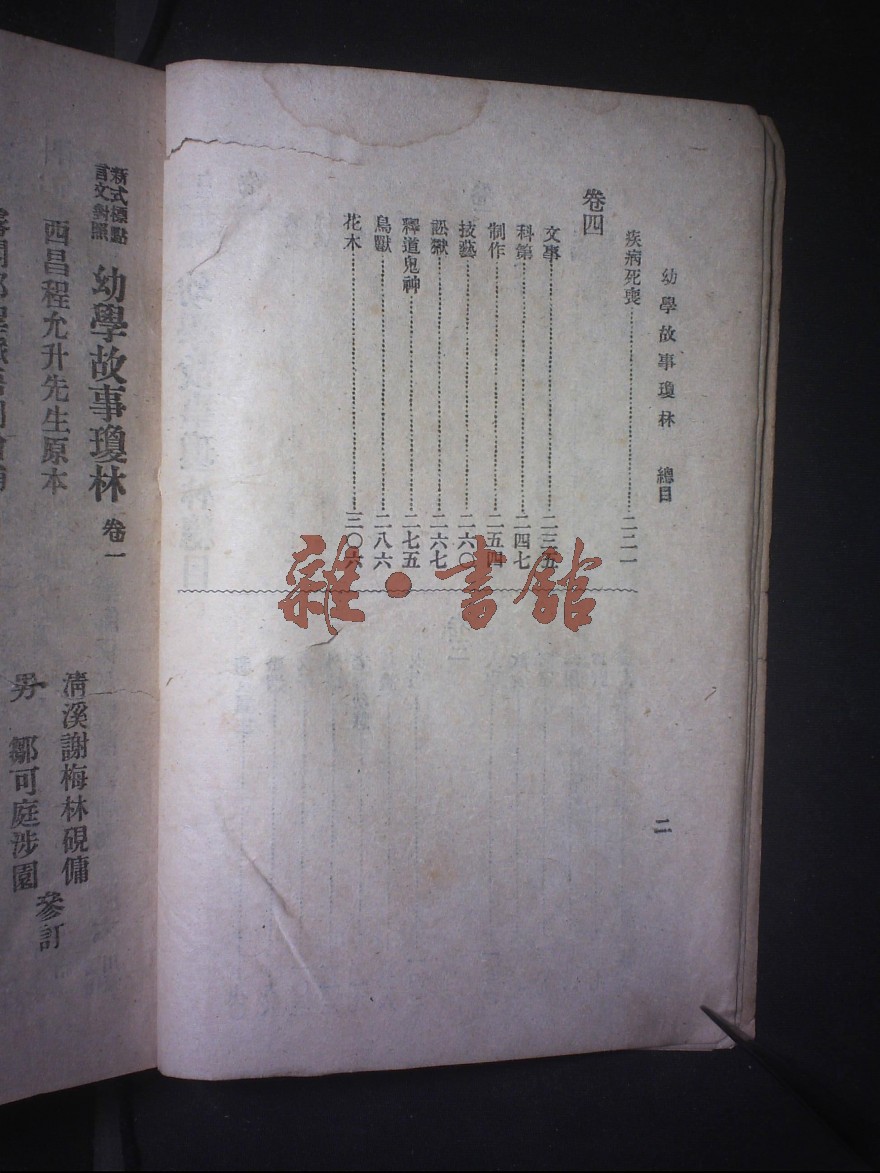 幼學故事瓊林　總目
二
疾病死喪……二二一
卷四
文事……二三五
科第……二四七
制作……二五四
技藝……二六〇
訟獄……二六七
釋道鬼神……二七五
鳥獸……二八六
花木……三〇六
雜·書館
新式標點
言文對照
幼學故事瓊林　卷一
西昌程允升先生原本
清溪謝梅林硯傭
男　鄒可庭涉園
參訂